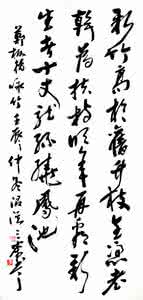 新竹高於舊竹枝全憑老
幹為扶持明年再有新
生者十丈龍孫繞鳳池
鄭板橋詠竹壬辰仲冬